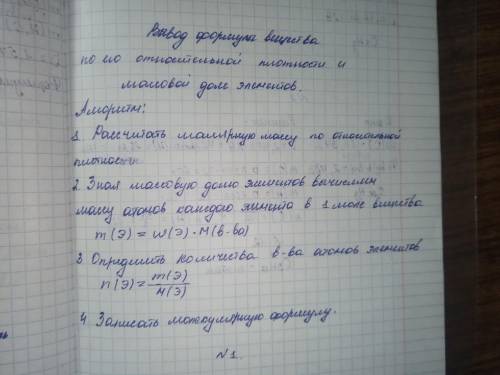 Вывод формулы вещества
по его относительной плотности и
массовой доле элементов.
Алгоритм:
1. Рассчитать молярную массу по относительной
плотности
2. Зная массовую долю элементов вычислим
массу атомов каждого элемента в 1 моле вещества
m(Э) = W(Э) · M(в-ва)
3. Определить количества в-ва атомов элементов
n(Э) = m(Э)/M(Э)
4. Записать молекулярную формулу.
N1.